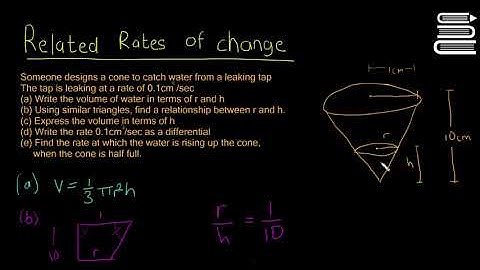 Related Rates of change
Someone designs a cone to catch water from a leaking tap
The tap is leaking at a rate of 0.1cm³/sec
(a) Write the volume of water in terms of r and h
(b) Using similar triangles, find a relationship between r and h.
(c) Express the volume in terms of h
(d) Write the rate 0.1cm³/sec as a differential
(e) Find the rate at which the water is rising up the cone,
when the cone is half full.
1cm
r
h
10cm
(a) V = 1/3 πr²h
(b)
1
10
r
r/h = 1/10